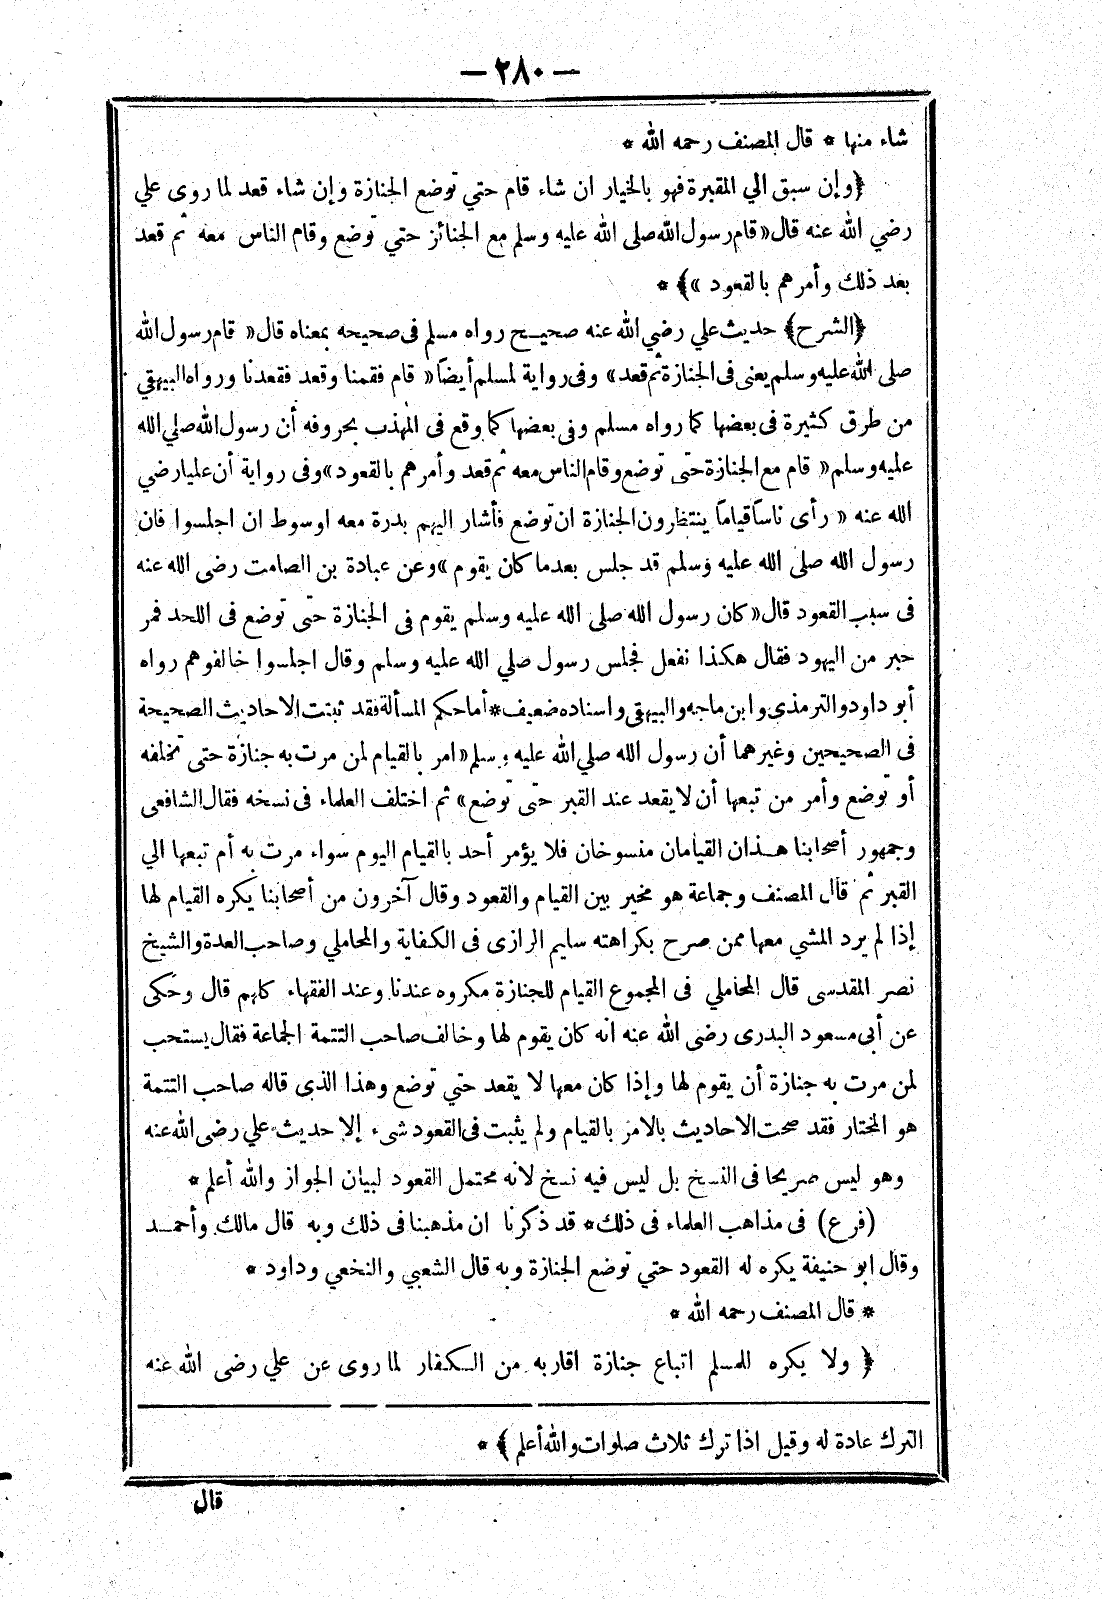 — ٢٨٠ —
شاء منها * قال المصنف رحمه الله *
﴿وإن سبق الي المقبرة فهو بالخيار ان شاء قام حتي توضع الجنازة وإن شاء قعد لما روى علي
رضي الله عنه قال « قام رسول الله صلى الله عليه وسلم مع الجنائز حتي توضع وقام الناس معه ثم قعد
بعد ذلك وأمرهم بالقعود »﴾ *
﴿الشرح﴾ حديث علي رضي الله عنه صحيح رواه مسلم فى صحيحه بمعناه قال « قام رسول الله
صلى الله عليه وسلم يعنى فى الجنازة ثم قعد » وفى رواية لمسلم أيضاً « قام فقمنا وقعد فقعدنا ورواه البيهقي
من طرق كثيرة فى بعضها كما رواه مسلم وفى بعضها كما وقع فى المهذب بحروفه أن رسول الله صلي الله
عليه وسلم « قام مع الجنازة حتى توضع وقام الناس معه ثم قعد وأمرهم بالقعود » وفى رواية أن عليا رضي
الله عنه « رأى ناساً قياماً ينتظرون الجنازة ان توضع فأشار اليهم بدرة معه او سوط ان اجلسوا فان
رسول الله صلى الله عليه وسلم قد جلس بعد ما كان يقوم » وعن عبادة بن الصامت رضى الله عنه
فى سبب القعود قال « كان رسول الله صلى الله عليه وسلم يقوم فى الجنازة حتى توضع فى اللحد فمر
حبر من اليهود فقال هكذا نفعل فجلس رسول صلي الله عليه وسلم وقال اجلسوا خالفوهم رواه
أبو داود والترمذى وابن ماجه والبيهقى واسناده ضعيف * أما حكم المسألة فقد ثبتت الاحاديث الصحيحة
فى الصحيحين وغيرهما أن رسول الله صلي الله عليه وسلم « امر بالقيام لمن مرت به جنازة حتى تخلفه
أو توضع وأمر من تبعها أن لا يقعد عند القبر حتى توضع » ثم اختلف العلماء فى نسخه فقال الشافعى
وجمهور أصحابنا هذان القيامان منسوخان فلا يؤمر أحد بالقيام اليوم سواء مرت به أم تبعها الي
القبر ثم قال المصنف وجماعة هو مخير بين القيام والقعود وقال آخرون من أصحابنا يكره القيام لها
إذا لم يرد المشي معها ممن صرح بكراهته سليم الرازى فى الكفاية والمحاملي وصاحب العدة والشيخ
نصر المقدسى قال المحاملي فى المجموع القيام للجنازة مكروه عندنا وعند الفقهاء كلهم قال وحكى
عن أبى مسعود البدرى رضى الله عنه انه كان يقوم لها وخالف صاحب التتمة الجماعة فقال يستحب
لمن مرت به جنازة أن يقوم لها وإذا كان معها لا يقعد حتي توضع وهذا الذى قاله صاحب التتمة
هو المختار فقد صحت الاحاديث بالامر بالقيام ولم يثبت فى القعود شىء إلا حديث علي رضى الله عنه
وهو ليس صريحا فى النسخ بل ليس فيه نسخ لانه محتمل القعود لبيان الجواز والله أعلم *
(فرع) فى مذاهب العلماء فى ذلك * قد ذكرنا ان مذهبنا فى ذلك وبه قال مالك وأحمد
وقال ابو حنيفة يكره له القعود حتي توضع الجنازة وبه قال الشعبي والنخعي وداود *
* قال المصنف رحمه الله *
﴿ ولا يكره للمسلم اتباع جنازة اقاربه من الكفار لما روى عن علي رضى الله عنه
الترك عادة له وقيل اذا ترك ثلاث صلوات والله أعلم ﴾ *
قال